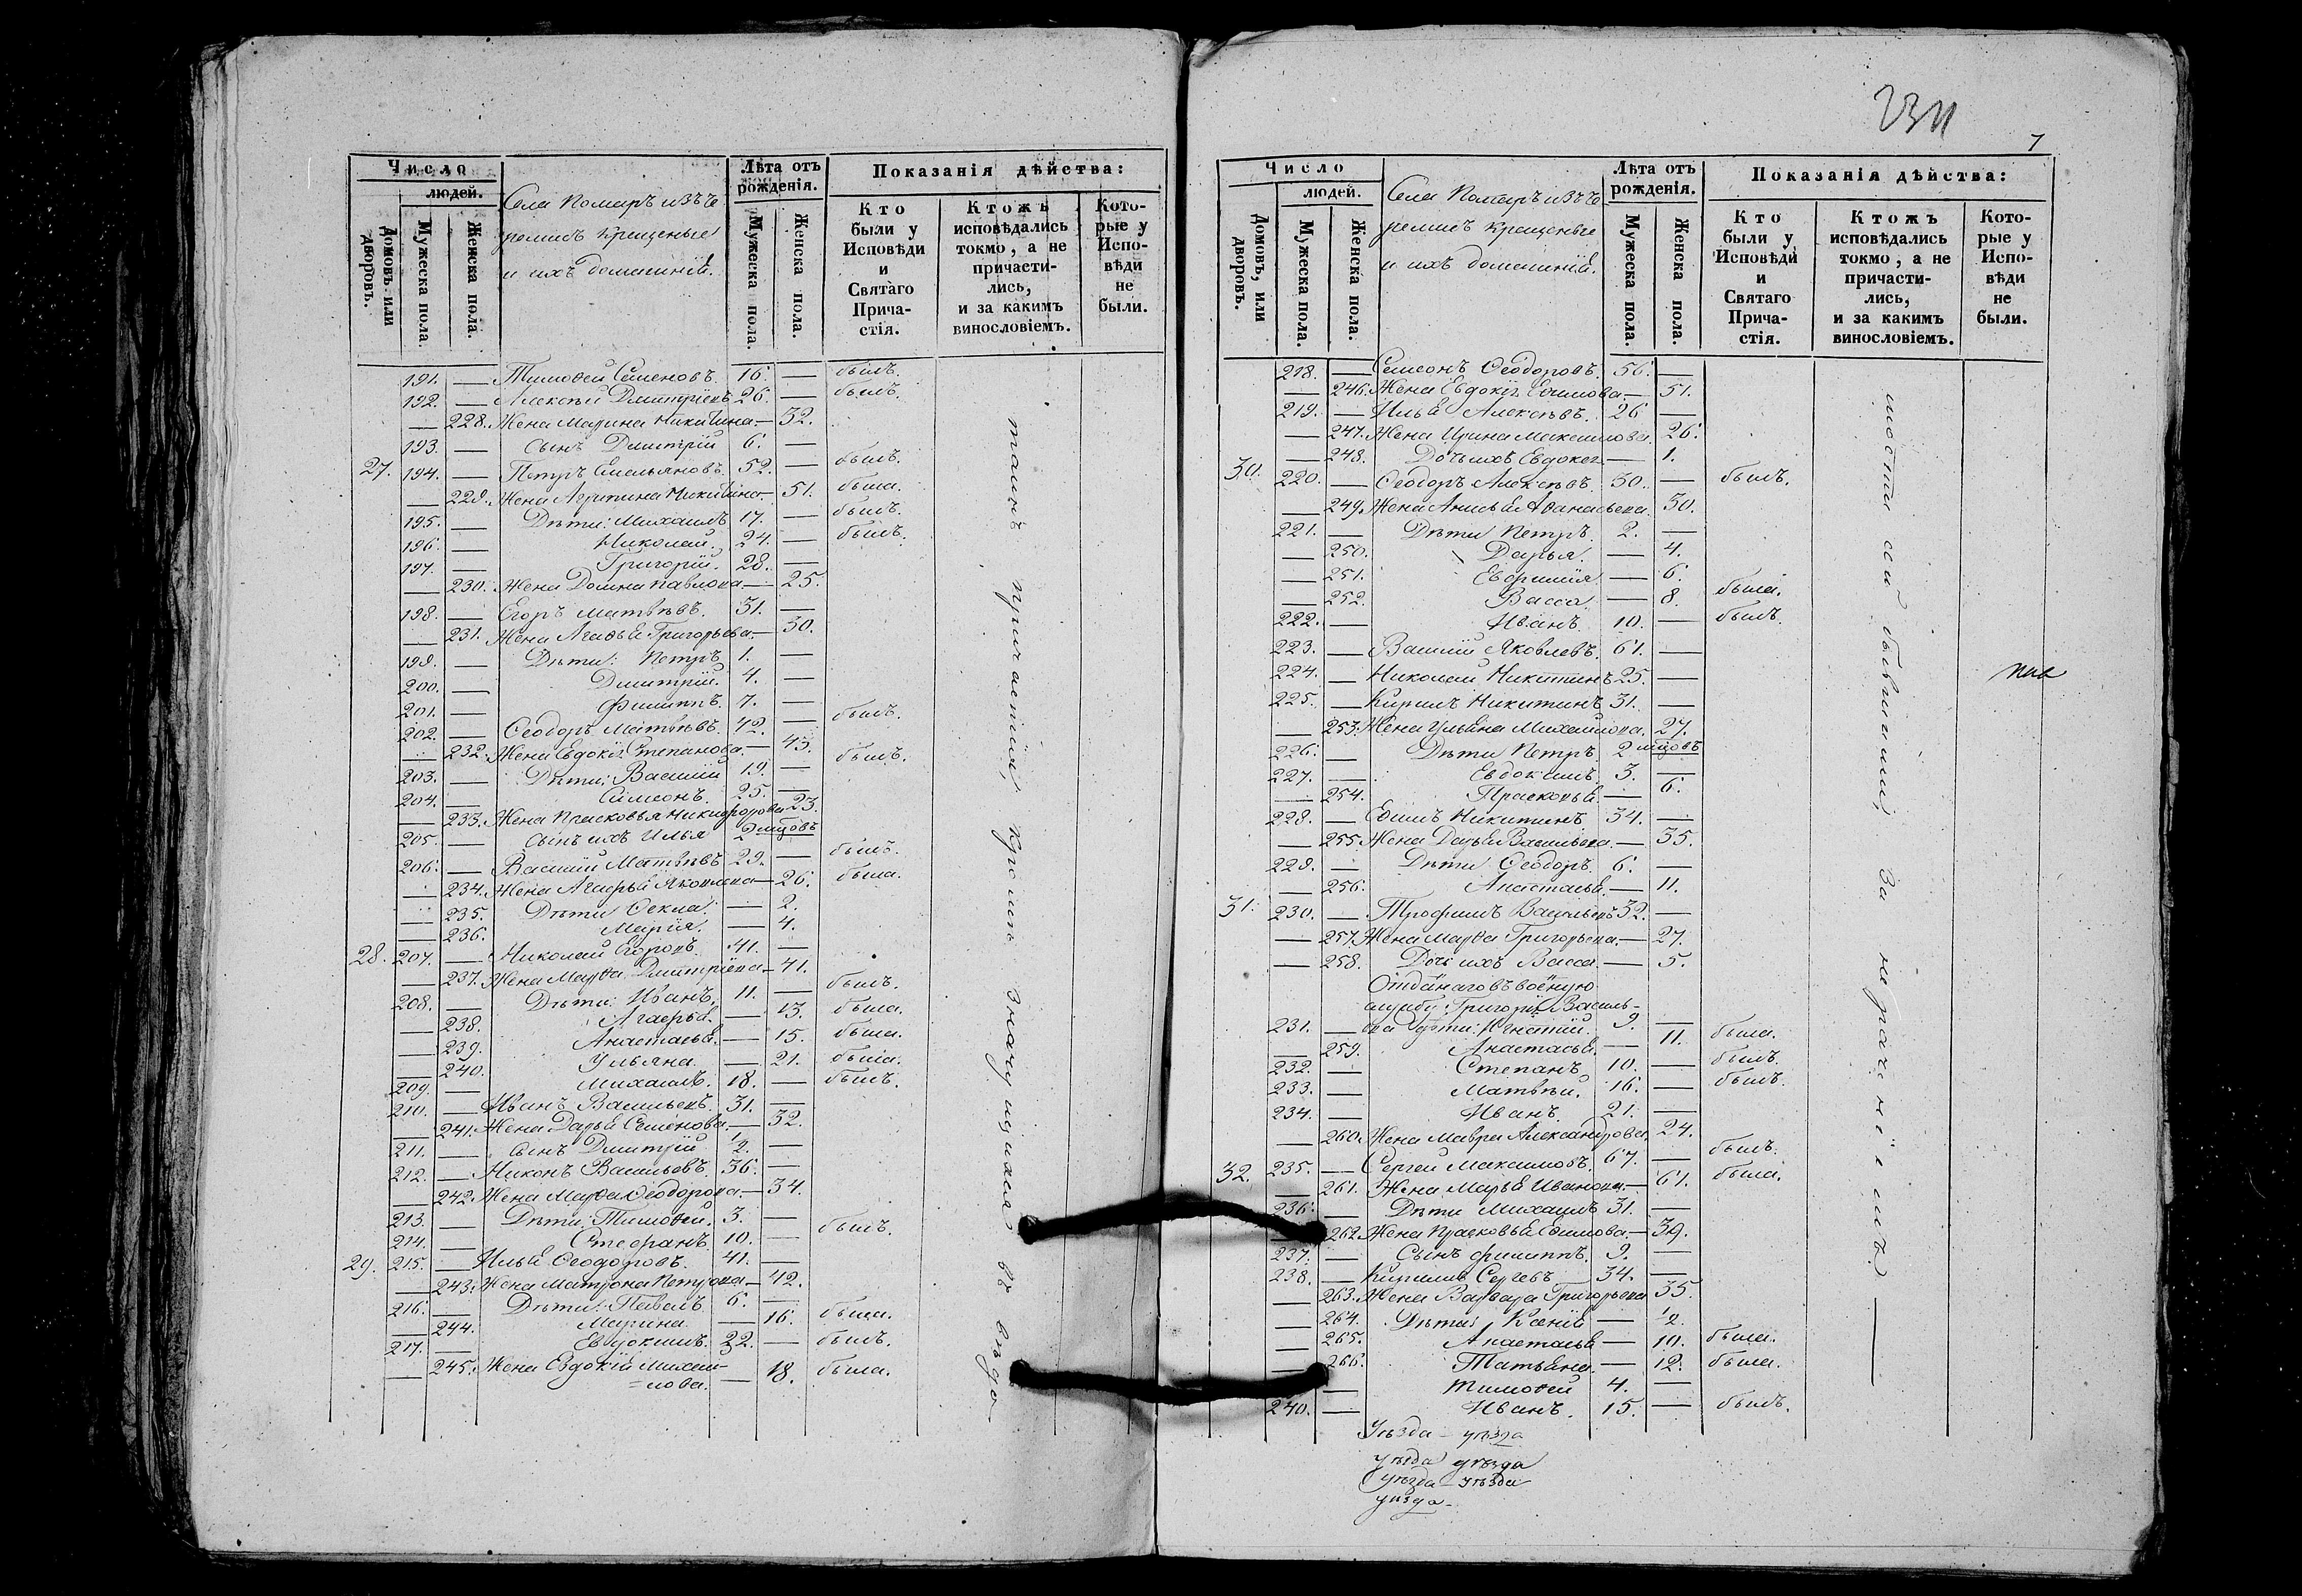 Число
людей.
Домовъ или дворовъ.
Мужеска пола.
Женска пола.
Села Помаръ изъ че
ремисъ крещеные
и ихъ домашніе.
Лѣта отъ рожденія.
Мужеска пола.
Женска пола.
Показанія дѣйства:
Кто были у Исповѣди и Святаго Прича-стія.
Ктожъ исповѣдались токмо, а не причасти-лись, и за какимъ винословіемъ.
Кото-рые у Испо-вѣди не были.
191. — Тимоѳей Семеновъ. 16. — былъ.
192. — Алексѣй Дмитріевъ 26. — былъ.
— 228. Жена Марина Никитина — 32.
193. — сынъ Дмитрій 6. —
27. 194. — Петръ Емельяновъ. 52. — былъ.
— 229. Жена Агрипина Никитина — 51. была.
195. — Дѣти: Михаилъ 17. — былъ.
196. — Николай. 24. — былъ.
197. — Григорій. 28. —
— 230. Жена Домна Павлова — 25.
198. — Егоръ Матвѣевъ. 31. —
— 231. Жена Агаѳья Григорьева. — 30.
199. — Дѣти: Петръ 1. —
200. — Дмитрій. 4. —
201. — Филиппъ. 7. —
202. — Ѳеодоръ Матвѣевъ. 42. — былъ.
— 232. Жена Евдокія Степанова. — 43.
203. — Дѣти: Василій 19. — былъ.
204. — Симеонъ. 25. —
— 233. Жена Прасковья Никифорова 23.
205. — сынъ ихъ Илья 2 мцовъ
206. — Василій Матвѣевъ 29. — былъ.
— 234. Жена Агафья Яковлева — 26. была.
— 235. Дѣти Ѳекла. — 2.
— 236. Марія. — 4.
28. 207. — Николай Егоровъ. 41. —
— 237. Жена Марѳа Дмитріева — 41.
208. — Дѣти: Иванъ, 11. — былъ.
— 238. Агафья. — 13. была.
— 239. Анастасья. — 15. была.
— 240. Ульяна. — 21. была.
209. — Михаилъ. 18. — былъ.
210. — Иванъ Васильевъ. 31. —
— 241. Жена Дарья Семенова. — 32.
211. — сынъ Дмитрій 1/2. —
212. — Никонъ Васильевъ. 36. —
— 242. Жена Марѳа Ѳеодорова. — 34.
213. — Дѣти: Тимоѳей. 3. —
214. — Стефанъ. 10. — былъ.
29. 215. — Илья Ѳеодоровъ. 41. —
— 243. Жена Матрона Петрова — 42.
216. — Дѣти: Павелъ. 6. —
— 244. Марина. — 16. была.
217. — Евдокимъ. 22. — былъ.
— 245. Жена Евдокія Михаи-
=лова. — 18. была.
таинъ причастія, кромѣ значущихся въ вѣдо
7
Число
людей.
Домовъ, или дворовъ.
Мужеска пола.
Женска пола.
Села Помаръ изъ че
ремисъ крещеные
и ихъ домашніе.
Лѣта отъ рожденія.
Мужеска пола.
Женска пола.
Показанія дѣйства:
Кто были у Исповѣди и Святаго Прича-стія.
Ктожъ исповѣдались токмо, а не причасти-лись, и за какимъ винословіемъ.
Кото-рые у Испо-вѣди не были.
218. — Семеонъ Ѳеодоровъ. 56. —
— 246. Жена Евдокія Еѳимова — 51.
219. — Илья Алексѣевъ. 26 —
— 247. Жена Ирина Максимова. 26.
— 248. Дочь ихъ Евдокея — 1.
30. 220. — Ѳеодоръ Алексѣевъ. 30. — былъ.
— 249. Жена Анисья Аѳанасьева. 30.
221. — Дѣти Петръ. 2. —
— 250. Дарья. — 4.
— 251. Евфимія. — 6.
— 252. Васса. — 8. была.
222. — Иванъ. 10. — былъ.
223. — Василій Яковлевъ. 61. —
224. — Николай Никитинъ 25. —
225. — Кирилъ Никитинъ 31. —
— 253. Жена Ульяна Михаилова. 27.
226. — Дѣти Петръ. 2 мцовъ
227. — Евдокимъ. 3. —
— 254. Прасковья. — 6.
228. — Еѳимъ Никитинъ 34. —
— 255. Жена Дарья Васильева. — 35.
229. — Дѣти Ѳеодоръ. 6. —
— 256. Анастасья. — 11.
31. 230. — Трофимъ Васильевъ 32. —
— 257. Жена Марѳа Григорьева. — 27.
— 258. Дочь ихъ Васса. — 5.
Отданаго въ военую
службу Григорія Василь-
231. — ева дѣти: Игнатій. 9. —
— 259. Анастасья. — 11. была.
232. — Степанъ 10. — былъ.
233. — Матвѣй. 16. — былъ.
234. — Иванъ. 21. —
— 260. Жена Мавра Александрова. 24.
32. 235. — Сергей Максимовъ. 67. — былъ.
— 261. Жена Марья Иванова. — 61. была.
236. — Дѣти Михаилъ 31. —
262. Жена Прасковья Еѳимова. — 39.
237. — Сынъ Филиппъ. 9. —
238. — Кирилъ Сергѣевъ 34. —
— 263. Жена Варвара Григорьева 35.
— 264. Дѣти: Ксенія — 1/2.
— 265. Анастасья — 10. была.
266. Татьяна. — 12. была.
— Тимоѳей 4. —
240. — Иванъ. 15. — былъ.
мости сей бывшими, за нераченіемъ. —
Уѣзда — уѣзда
уѣзда уѣзда
уѣзда — уѣзда
уѣзда —